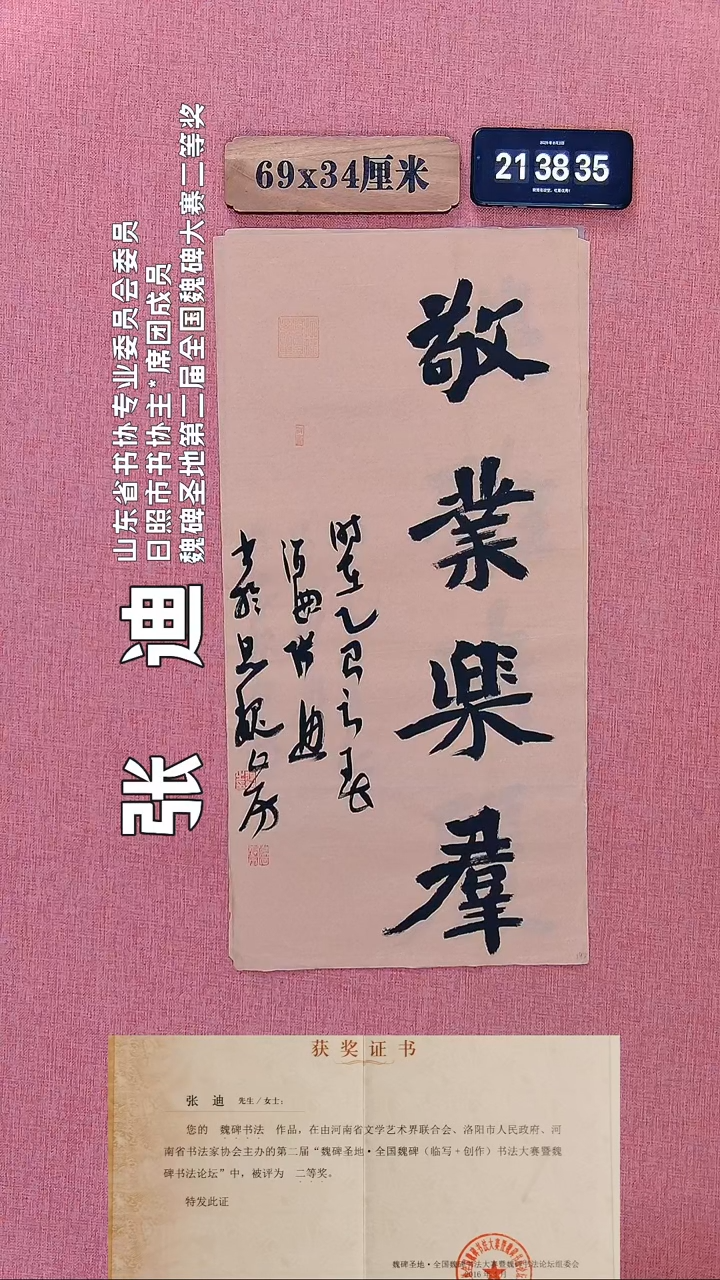 69x34厘米
21 38 35
山东省书协专业委员会委员
日照市书协主*席团成员
魏碑圣地第二届全国魏碑大赛二等奖
张 迪
敬業樂羣
时在乙巳之春
张迪
获奖证书
张 迪 先生/女士:
您的 魏碑书法 作品,在由河南省文学艺术界联合会、洛阳市人民政府、河
南省书法家协会主办的第二届“魏碑圣地·全国魏碑(临写+创作)书法大赛暨魏
碑书法论坛”中,被评为 二等奖。
特发此证
魏碑圣地·全国魏碑书法大赛暨魏碑书法论坛组委会